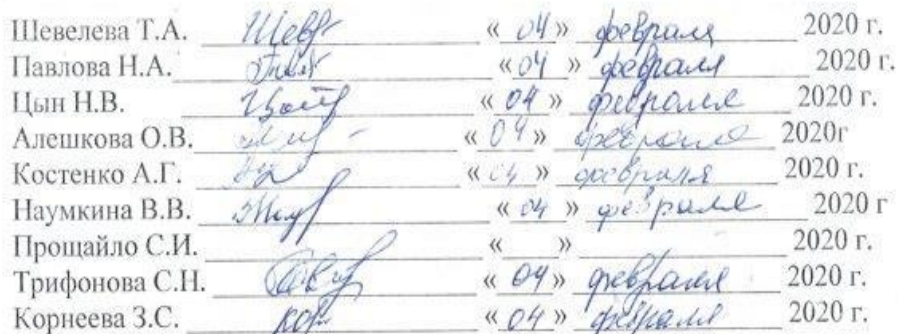 Шевелева Т.А. Шевр « 04 » февраля 2020 г.
Павлова Н.А. « 04 » февраля 2020 г.
Цын Н.В. « 04 » февраля 2020 г.
Алешкова О.В. « 04 » февраля 2020г
Костенко А.Г. « 04 » февраля 2020 г.
Наумкина В.В. « 04 » февраля 2020 г
Прощайло С.И. « » 2020 г.
Трифонова С.Н. « 04 » февраля 2020 г.
Корнеева З.С. Кор « 04 » февраля 2020 г.